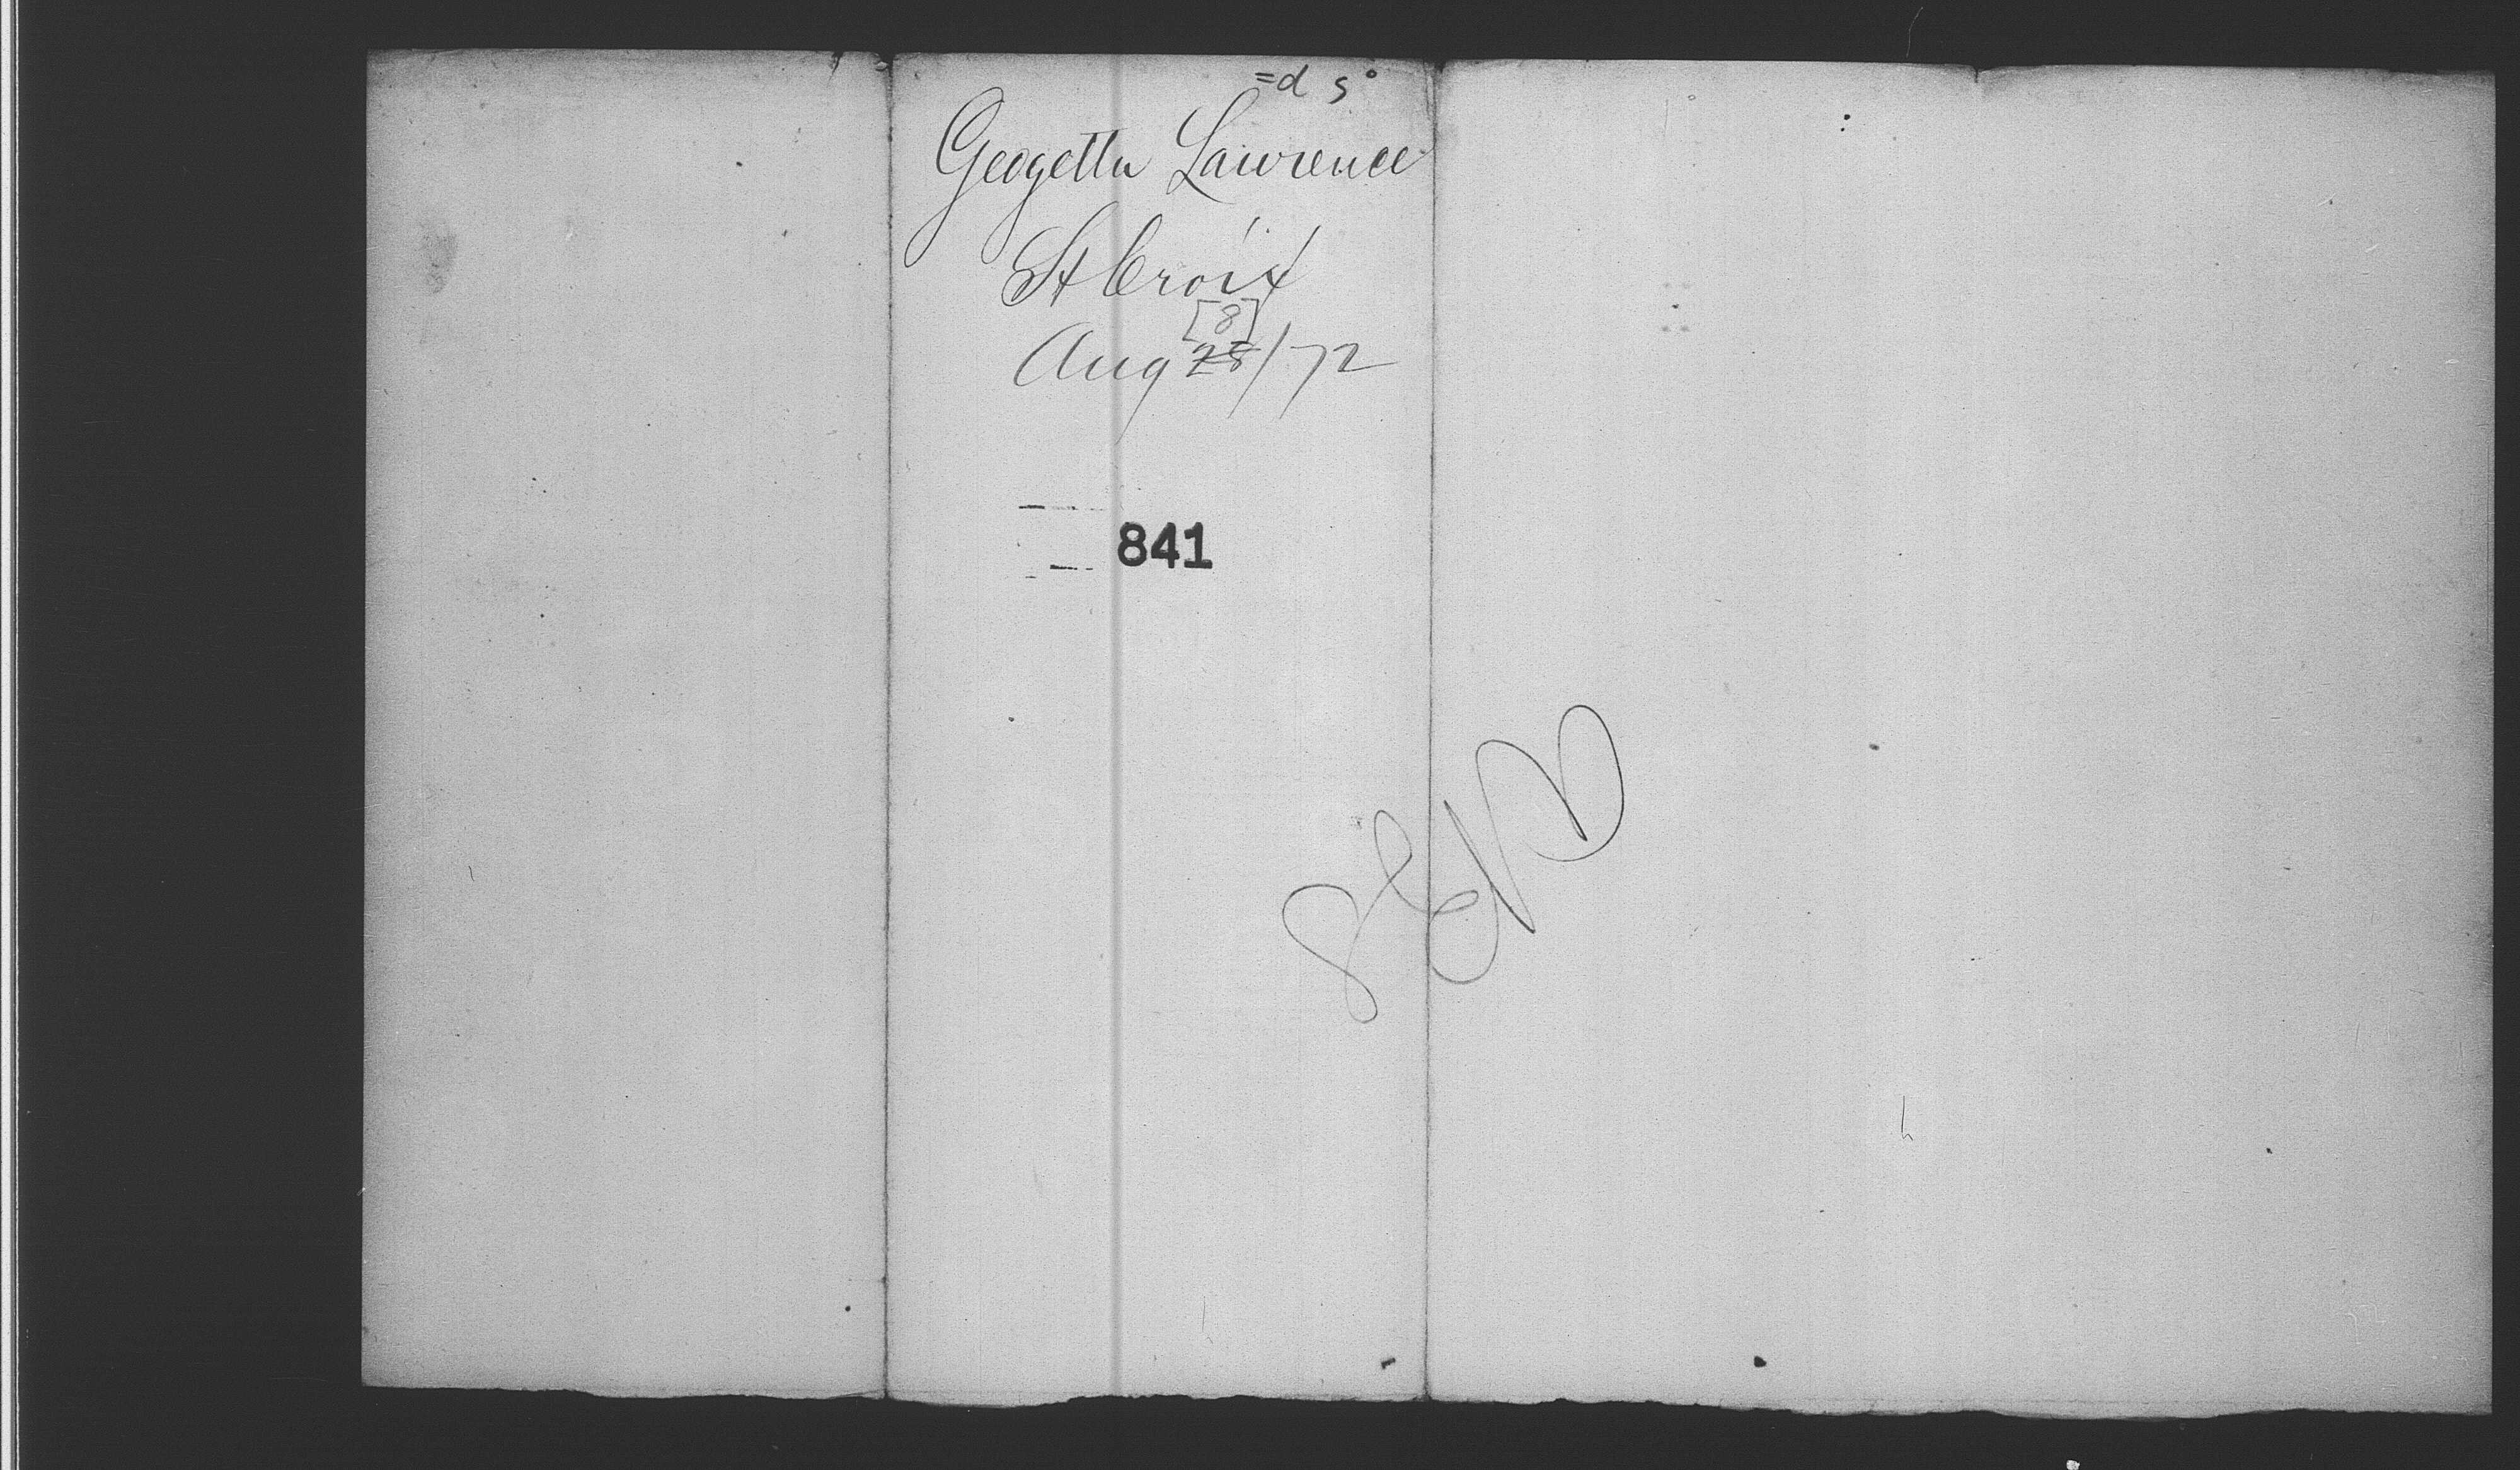 =d s°
Geogetta Lawrence
St Croix
[8]
Aug 28/72
841